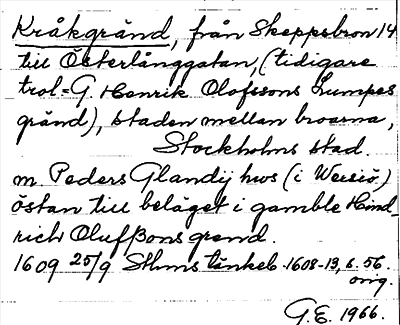 Kråkgränd, från Skeppsbron 14
till Österlånggatan, (tidigare
trol = G. Henrik Olofssons Lumpes
gränd), staden mellan broarna,
Stockholms stad.
m. Peders Glandij hws (i
östan till beläget i gamble Hind_
rich Olufßons grend.
1609 25/9 Sthms tänkeb 1608-13, s. 56.
orig.
G.E. 1966.